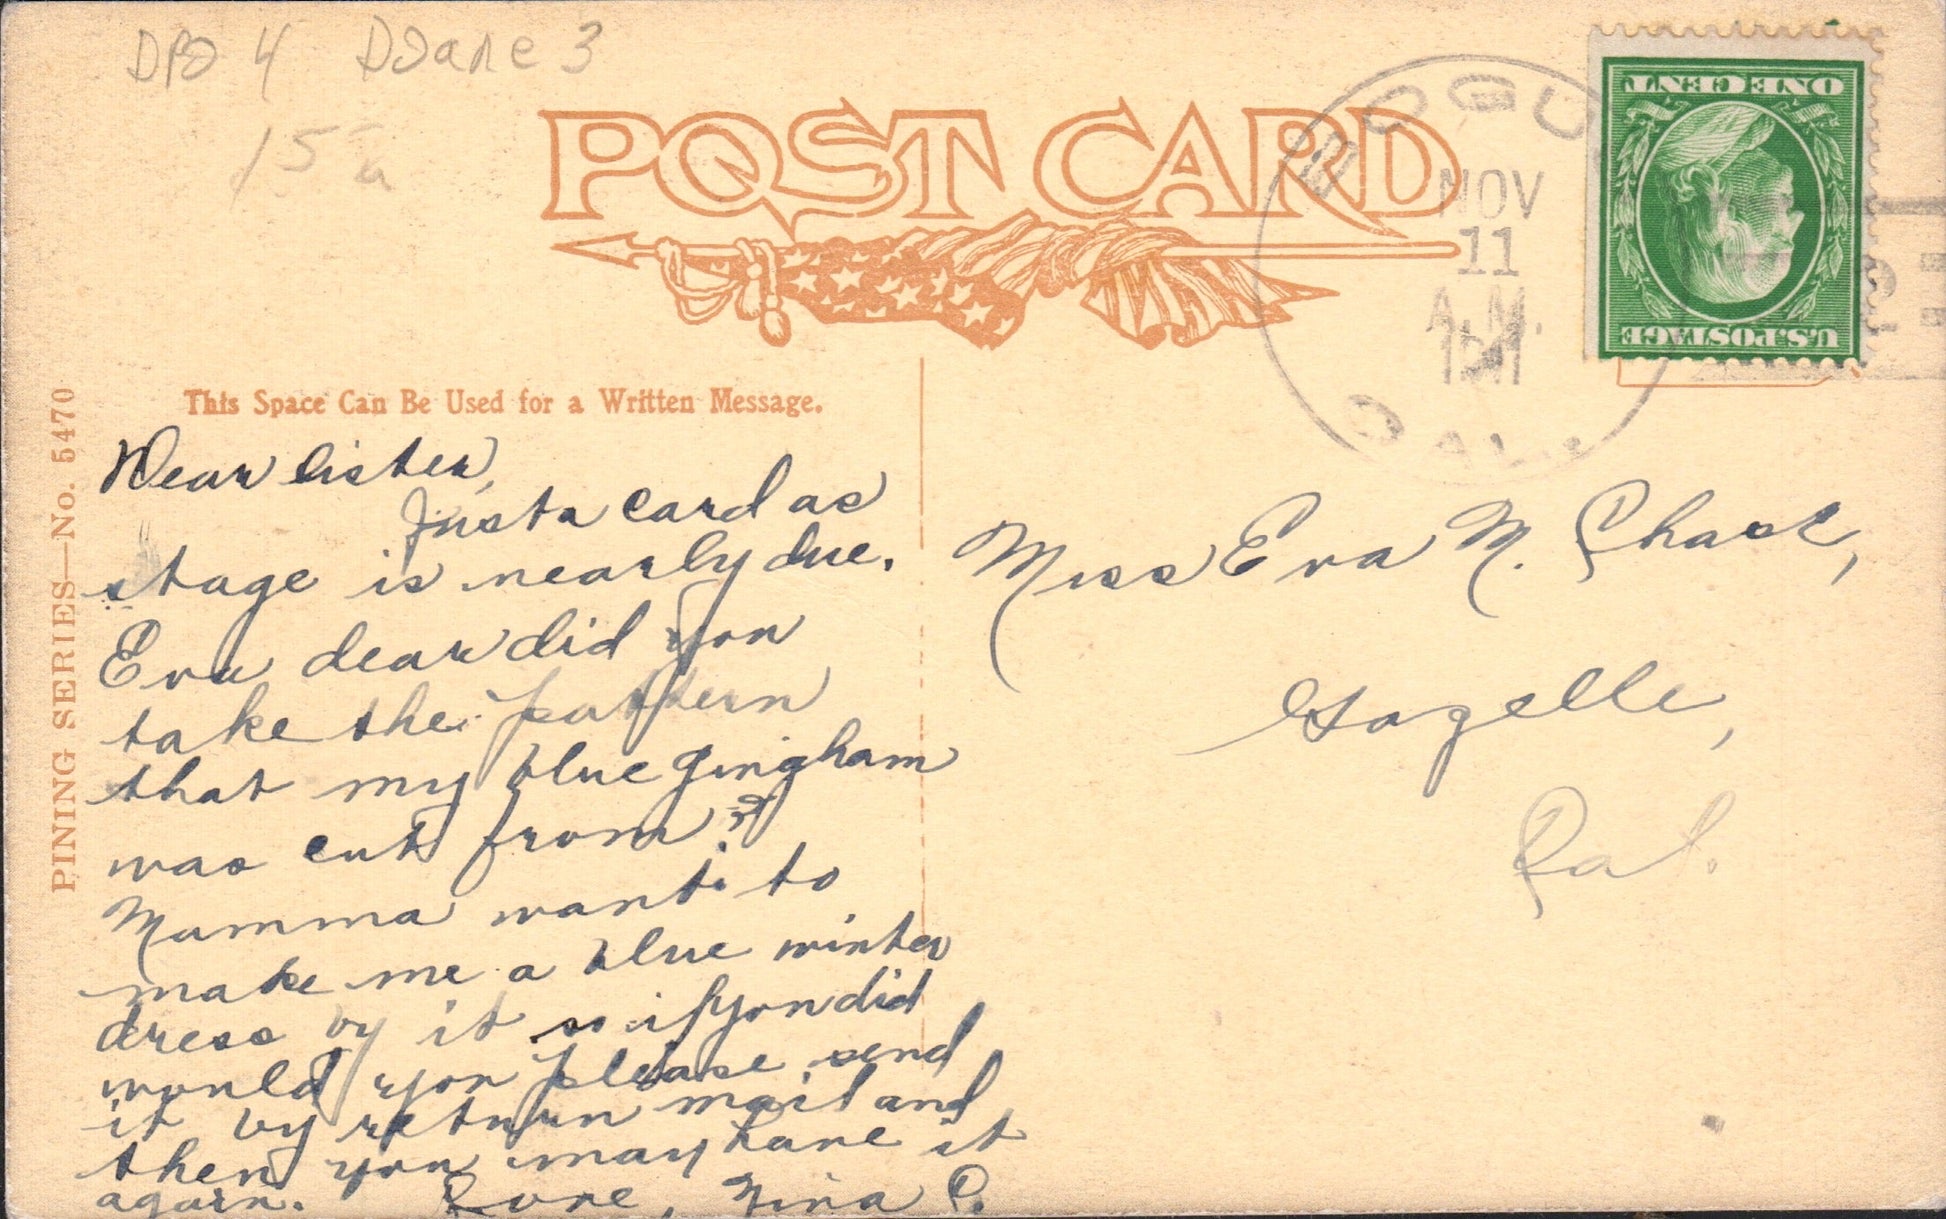 DPO 4 Doane 3
15ーa
POST CARD
BOGU
NOV
11
A.M.
1911
CAL.
ONE CENT
U.S. POSTAGE
PINING SERIES—No. 5470
This Space Can Be Used for a Written Message.
Dear sister,
Just a card as
stage is nearly due.
Eva dear did you
take the pattern
that my blue gingham
was cut from?
Mamma wants to
make me a blue winter
dress by it so if you did
would you please send
it by return mail and
then you may have it
again. Love, Nina C.
Miss Eva M. Chase,
Gazelle,
Cal.